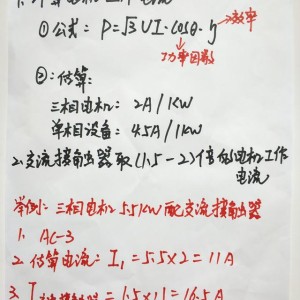 1. 计算电机工作电流
①公式: P=√3UI·cosθ·η→效率
功率因数
②:估算:
三相电机: 2A/1KW
单相设备: 4.5A/1KW
2.交流接触器取(1.5-2)倍的电机工作
电流
举例: 三相电机5.5KW配交流接触器
1. AC-3
2. 估算电流: I₁=5.5×2=11A
3. I =1.5×11=16.5A